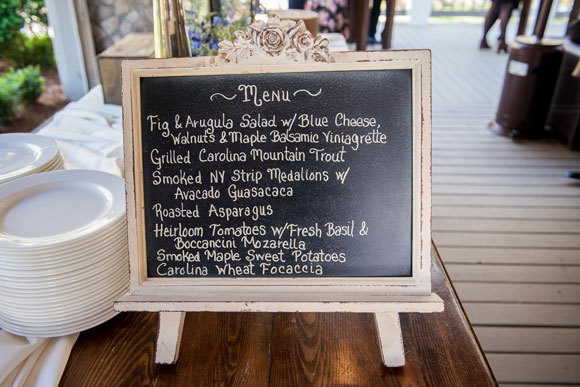 ~ Menu ~
Fig & Arugula Salad w/ Blue Cheese,
Walnuts & Maple Balsamic Viniagrette
Grilled Carolina Mountain Trout
Smoked NY Strip Medalions w/
Avacado Guasacaca
Roasted Asparagus
Heirloom Tomatoes w/Fresh Basil &
Boccancini Mozarella
Smoked Maple Sweet Potatoes
Carolina Wheat Focaccia